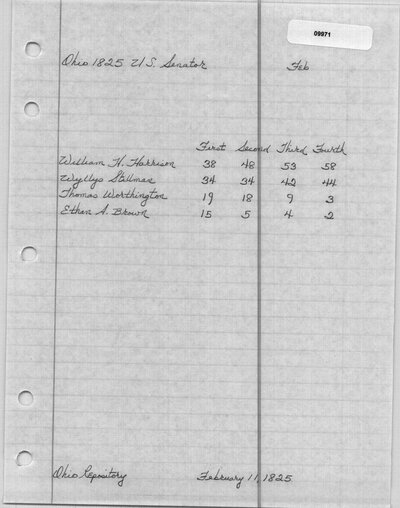 09971
Ohio 1825 U.S. Senator Feb
First Second Third Fourth
William H. Harrison 38 48 53 58
Wyllys Stillman 34 34 42 44
Thomas Worthington 19 18 9 3
Ethan A. Brown 15 5 4 2
Ohio Repository February 11, 1825